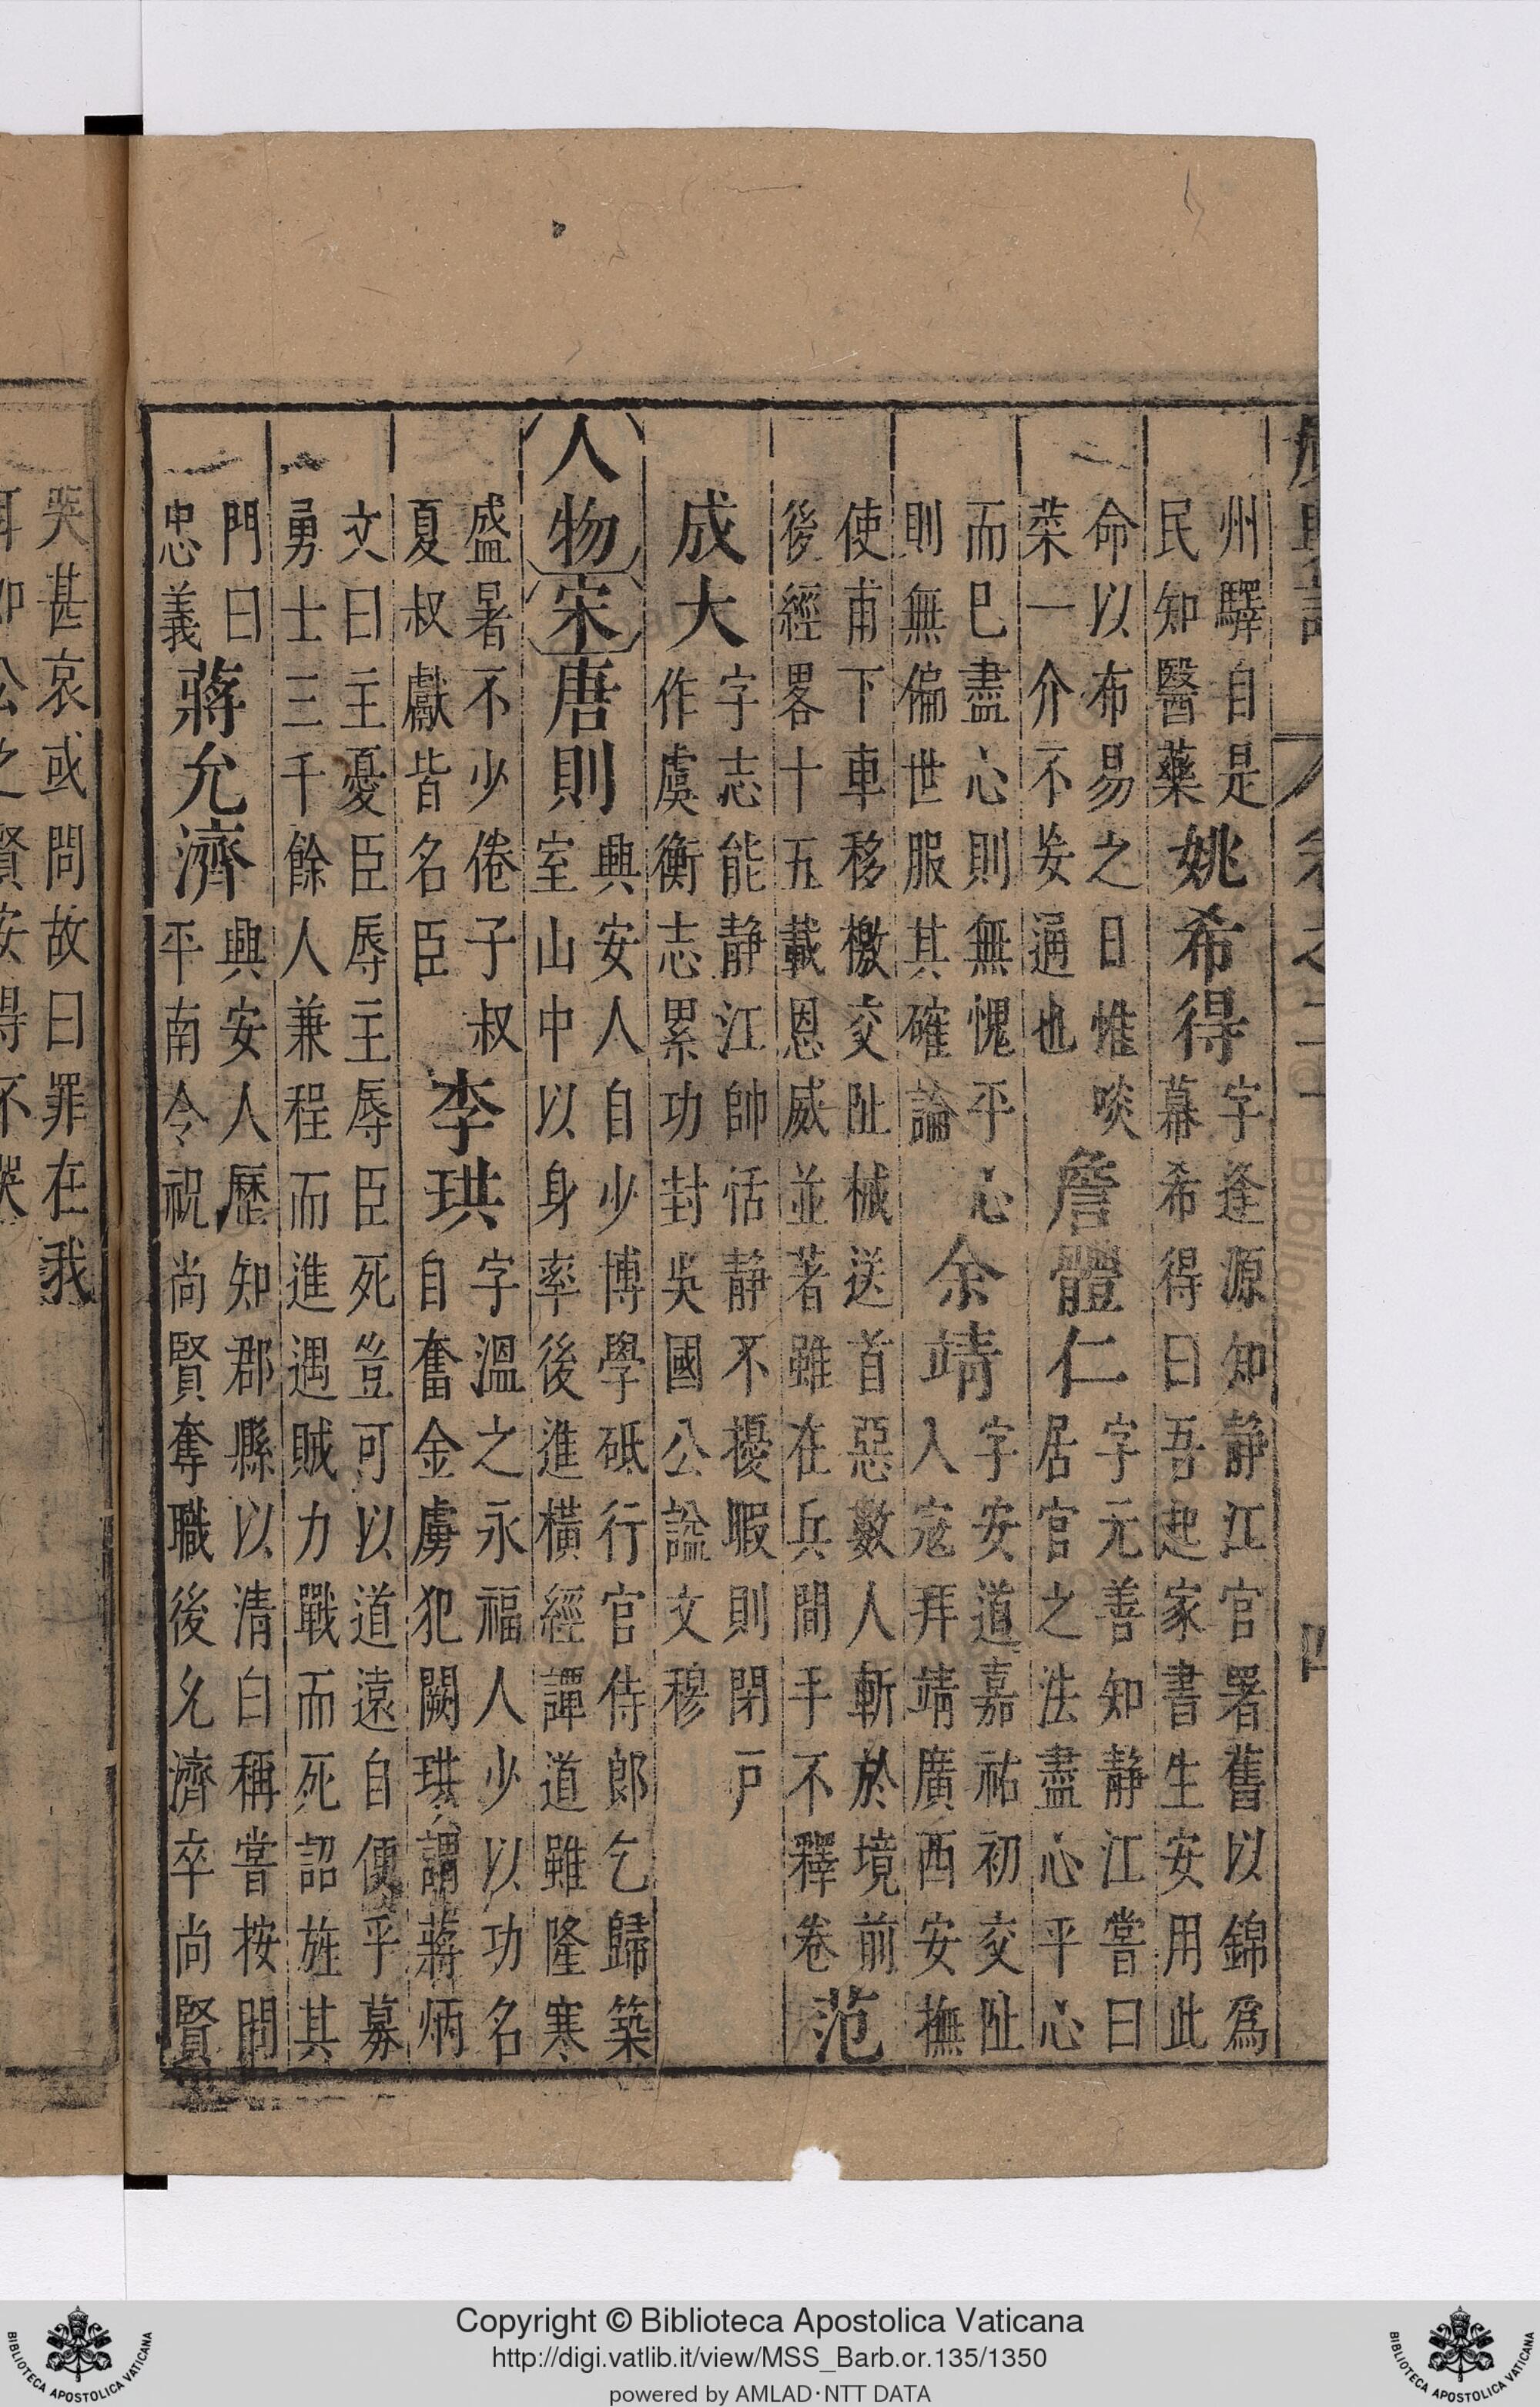 州驛自是民知醫藥姚希得字逢源知静江官署舊以錦爲幕希得曰吾起家書生安用此
命以布易之日惟啖菜一介不妄通也詹體仁字元善知静江嘗曰居官之法盡心平心
而已盡心則無愧平心則無偏世服其確論余靖字安道嘉祐初交趾入寇拜靖廣西安撫
使甫下車移檄交趾械送首惡數人斬於境前後經畧十五載恩威並著雖在兵間手不釋卷范
成大字志能静江帥恬静不擾暇則閉戸作虞衡志累功封吳國公諡文穆
人物宋唐則興安人自少博學砥行官侍郎乞歸築室山中以身率後進橫經譚道雖隆寒
盛暑不少倦子叔夏叔獻皆名臣李珙字溫之永福人少以功名自奮金虜犯闕珙謂蔣炳
文曰主憂臣辱主辱臣死豈可以道遠自便乎募勇士三千餘人兼程而進遇賊力戰而死詔旌其
門曰忠義蔣允濟興安人歷知郡縣以清白稱嘗按問平南令祝尚賢奪職後允濟卒尚賢
哭甚哀或問故曰罪在我
Copyright © Biblioteca Apostolica Vaticana
http://digi.vatlib.it/view/MSS_Barb.or.135/1350
powered by AMLAD·NTT DATA
BIBLIOTECA APOSTOLICA VATICANA
BIBLIOTECA APOSTOLICA VATICANA